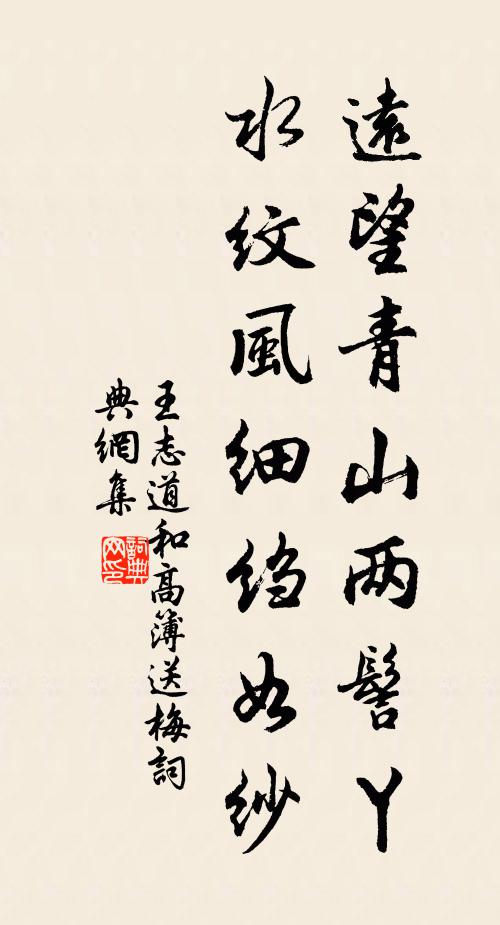 遠望青山兩髻丫
水紋風細縐如紗
王志道和高簿送梅詞
典網集
詞典網印